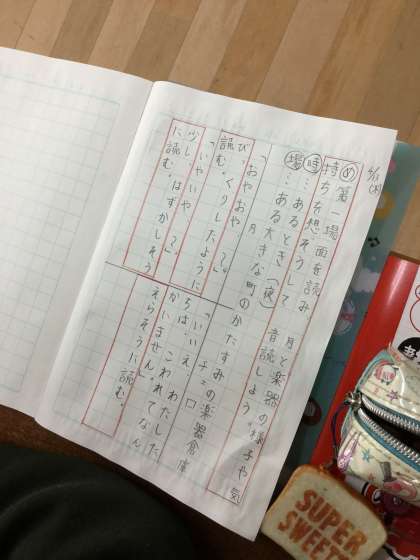 ㋱第一場面を読み 月と楽器の様子や気
持ちを想ぞうして 音読しよう。
時…あるとき(夜)
場…ある大きな町のかたすみの楽器倉庫
月
「おやおや 〜。」
びっくりしたように
読む。
「いやいや 〜。」
少しはずかしそう
に読む。
チェロ
「いいえ わたした
ちは、こわれてなん
かいません。」
えらそうに読む。
SUPER
SWEET